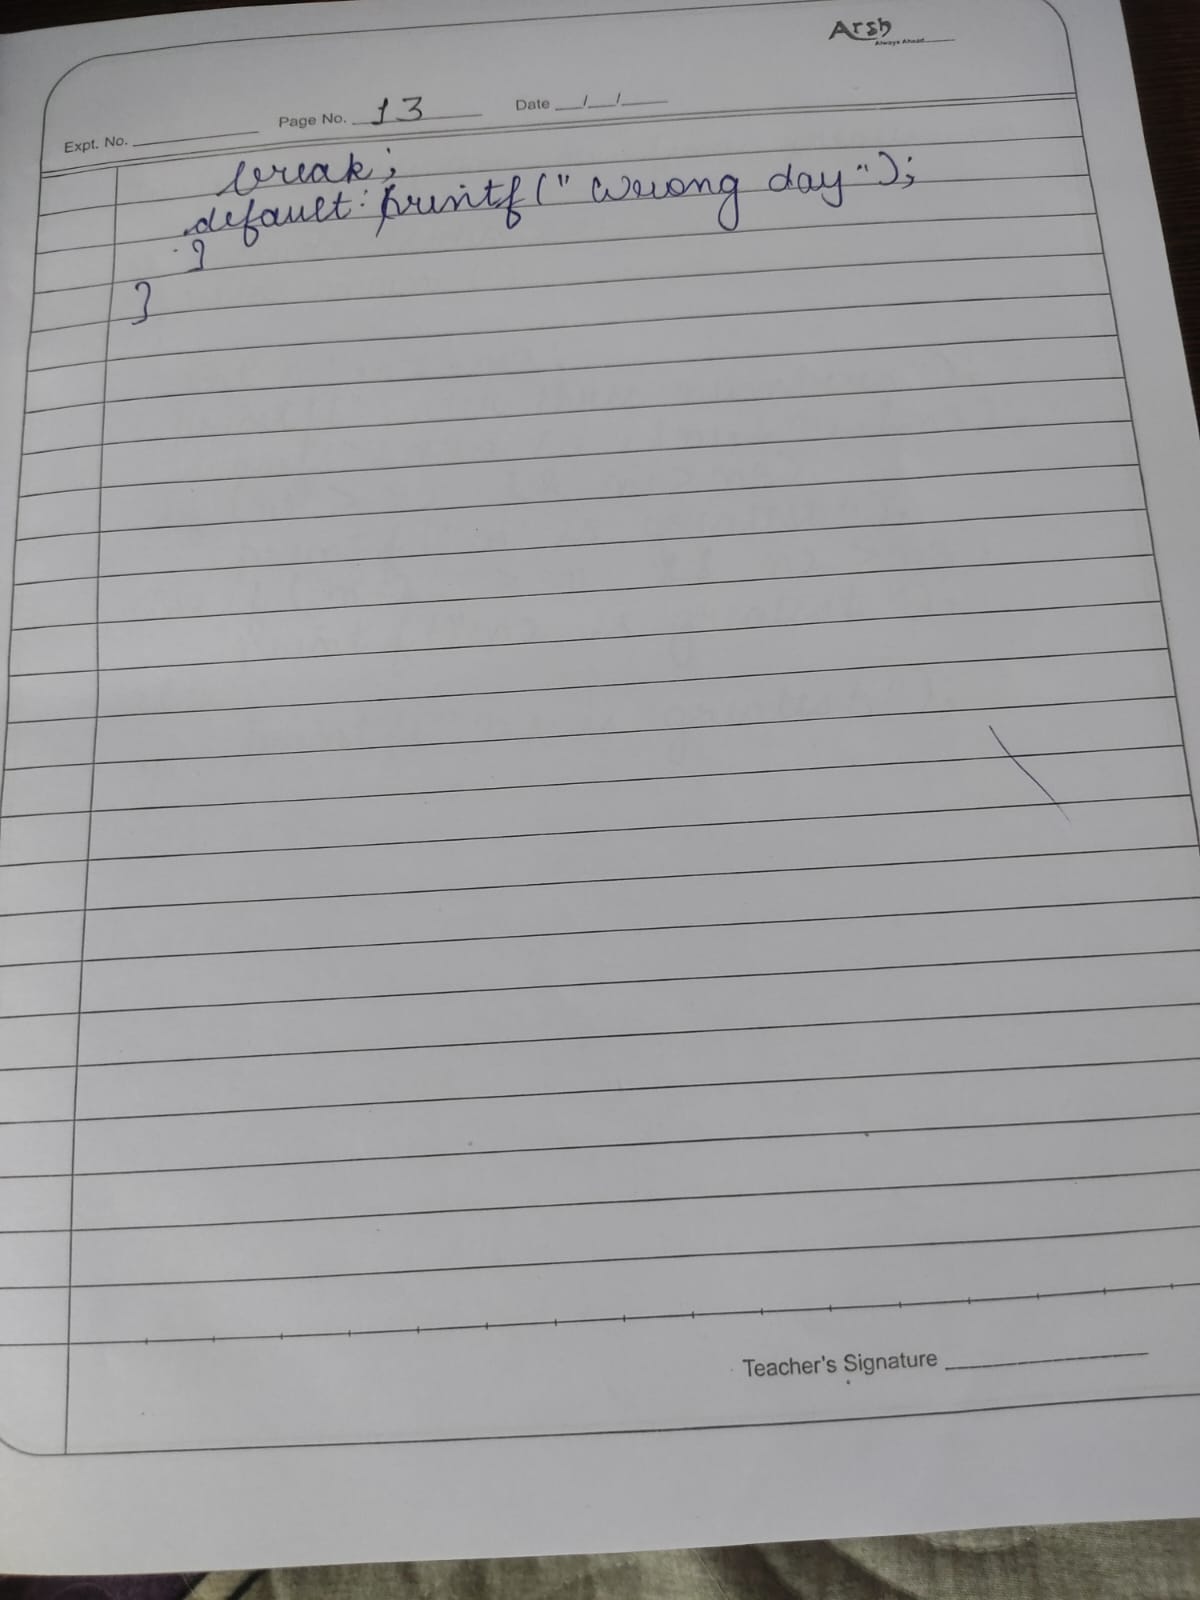 Arsh
Always Ahead
Expt. No. Page No. 13 Date / /
break;
default: printf(" Wrong day");
}
}
Teacher's Signature